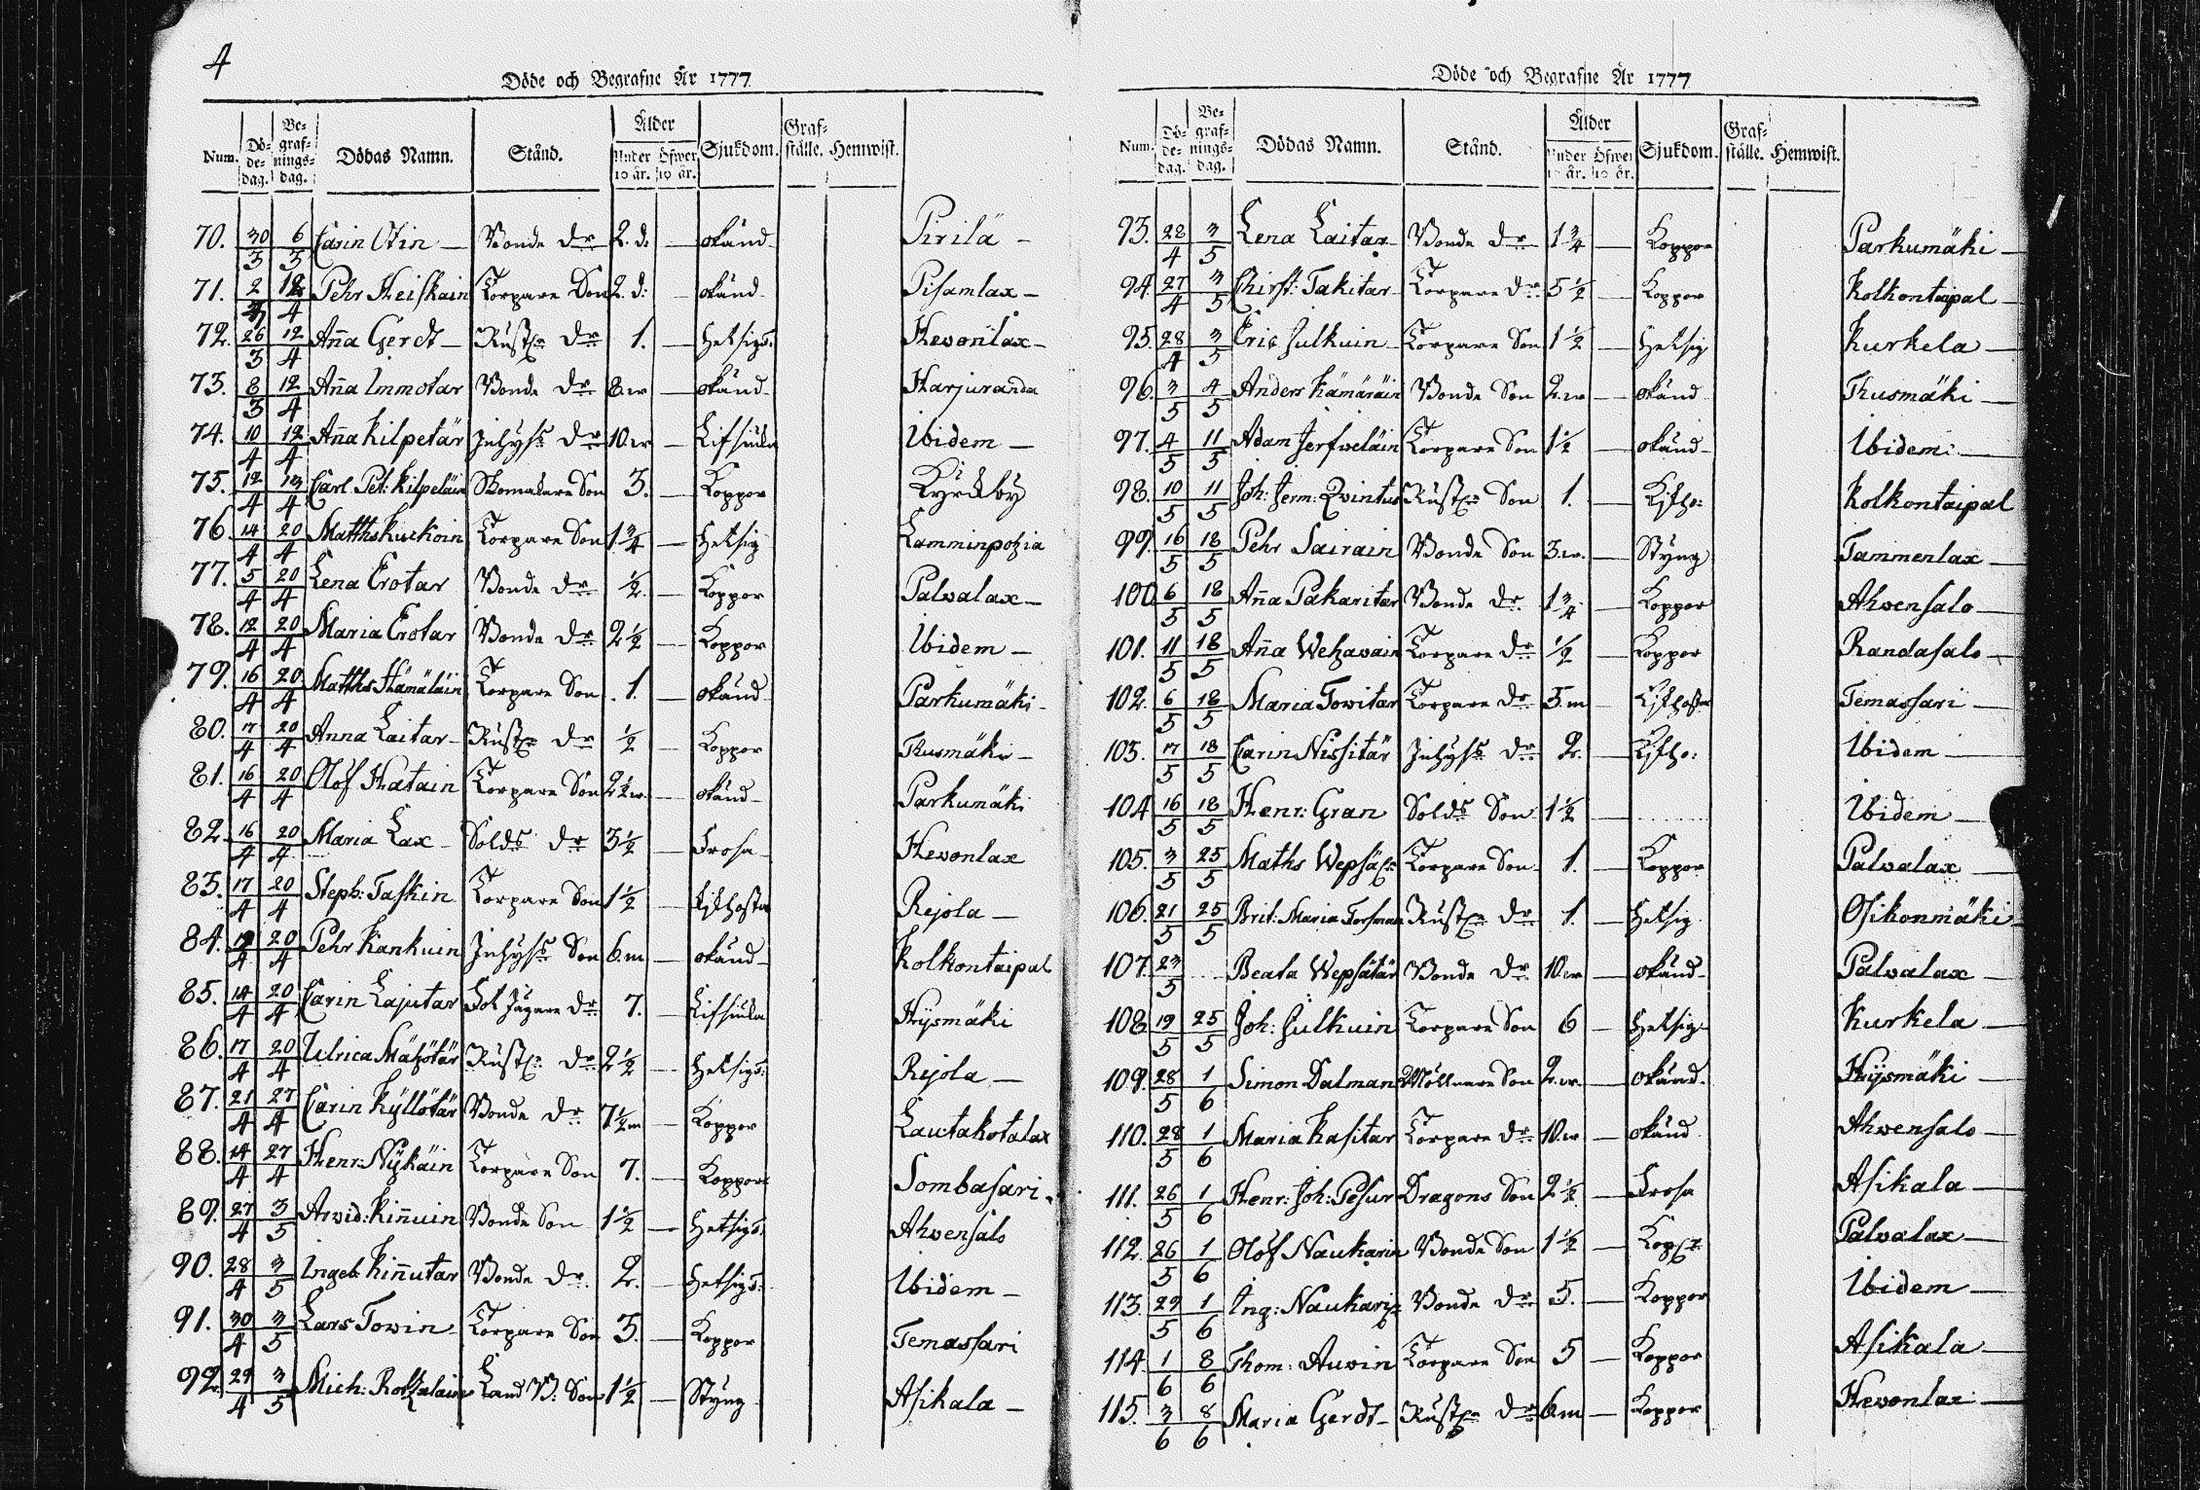 4
Döde och Begrafne År 1777
Num. Dödedag. Begrafningsdag. Dödas Namn. Stånd. Ålder Under 10 år. Öfwer 10 år. Sjukdom. Grafställe. Hemwist.
70. 30/3 6/3 Carin Otin Bonde dr 2. d: — okänd Pirilä
71. 2/4 18/4 Pehr Heiskain Torpare Son 2. d: — okänd Pisamlax
72. 26/3 12/4 Aña Gerdt Rust dr 1. — Hetsigs: Hevonlax
73. 8/3 12/4 Aña Immotar Bonde dr 8.w — okänd Harjuranda
74. 10/4 12/4 Aña Kilpetär Inhys dr 10.w — Lifsiuka Ibidem
75. 12/4 13/4 Carl Pet: Kilpeläin Skomakare Son 3. — Koppor Kyrckby
76 14/4 20/4 Matths Kuckoin Torpare Son 1 3/4 — Hetsig Lamminpohia
77. 5/4 20/4 Lena Erotar Bonde dr 1/2 — Koppor Palvalax
78. 12/4 20/4 Maria Erotar Bonde dr 2 1/2 — Koppor Ibidem
79. 16/4 20/4 Matths Hämäläin Torpare Son 1. — okänd Parkumäki
80. 17/4 20/4 Anna Laitar Rust dr 1/2 — Koppor Husmäki
81. 16/4 20/4 Olof Hatain Torpare Son 2 1/2 w. — okänd Parkumäki
82 16/4 20/4 Maria Lax Solds dr 3 1/2 — Frosa Hevonlax
83. 17/4 20/4 Steph: Taskin Torpare Son 1 1/2 — Kikhosta Rejola
84. 19/4 20/4 Pehr Kankuin Inhys Son 6.m — okänd Kolkontaipal
85. 14/4 20/4 Carin Lajutar Fot Jägare dr 7. — Lifsiuka Hysmäki
86. 17/4 20/4 Ulrica Mähötär Rust dr 2 1/2 — Hetsigs: Rejola
87. 21/4 27/4 Carin Kyllötär Bonde dr 7 1/2 m — Koppor Lautakotalax
88. 14/4 27/4 Henr: Nykäin Torpare Son 7. — Koppor Sombasari
89. 27/4 3/5 Arvid: Kiñuin Bonde Son 1 1/2 — Hetsigs: Ahvensalo
90. 28/4 3/5 Ingeb Kiñutar Bonde dr. 2. — Hetsigs: Ibidem
91. 30/4 3/5 Lars Towin Torpare Son 3. — Koppor Temassari
92. 29/4 3/5 Mich: Land B. Son 1 1/2 — Styng Asikala
Döde och Begrafne År 1777
Num. Dödedag. Begrafningsdag. Dödas Namn. Stånd. Ålder Under 10 år. Öfwer 10 år. Sjukdom. Grafställe. Hemwist.
93. 28/4 3/5 Lena Laitar Bonde dr 1 3/4 — Koppor Parkumäki
94. 27/4 3/5 Chirst: Takitar Torpare dr 5 1/2 — Koppor Kolkontaipal
95. 28/4 3/5 Eric Julkuin Torpare Son 1 1/2 — Hetsig Kurkela
96. 3/5 4/5 Anders Kämäräin Bonde Son 2.w — okänd Husmäki
97. 4/5 11/5 Adam Jerfveläin Torpare Son 1 1/2 — okänd Ibidem
98. 10/5 11/5 Joh: Jerm: Qvintus Rust Son 1. — Kikho: Kolkontaipal
99. 16/5 18/5 Pehr Sairain Bonde Son 3.w. — Styng Tammenlax
100 6/5 18/5 Aña Pakaritar Bonde dr 1 3/4 — Koppor Ahvensalo
101. 11/5 18/5 Aña Wehavain Torpare dr 1/2 — Koppor Randasalo
102. 6/5 18/5 Maria Towitar Torpare dr 3.m — Kikhosta Temassari
103. 17/5 18/5 Carin Nissitär Inhys dr 2. — Kikho: Ibidem
104 16/5 18/5 Henr: Gran Solds Son 1 1/2 — Ibidem
105. 3/5 25/5 Maths Wepsä Torpare Son 1. — Koppor Palvalax
106. 21/5 25/5 Brit: Maria Forsman Rust dr 1. — Hetsig Osikonmäki
107. 23/5 Beata Wepsätär Bonde dr 10.w — okänd Palvalax
108 19/5 25/5 Joh: Julkuin Torpare Son 6 — Hetsig Kurkela
109. 28/5 1/6 Simon Dalman Möllnare Son 2.w. — okänd. Hysmäki
110. 28/5 1/6 Maria Kasitar Torpare dr 10.w — okänd Ahvensalo
111. 26/5 1/6 Henr: Joh: Pesur Dragons Son 2 1/2 — Frosa Asikala
112 26/5 1/6 Olof Naukarin Bonde Son 1 1/2 — Kopr Palvalax
113. 29/5 1/6 Ing: Bonde dr 5. — Koppor Ibidem
114 1/6 8/6 Thom: Auvin Torpare Son 5 — Koppor Asikala
115. 3/6 8/6 Maria Gerdt Rust dr 6.m — Koppor Hevonlax